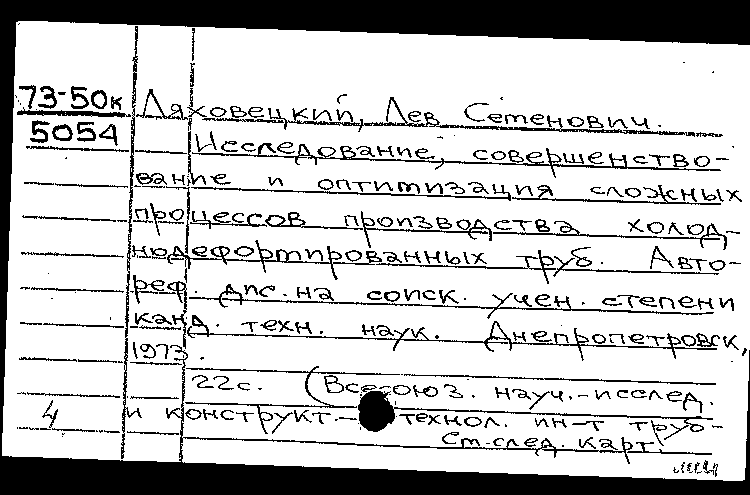 73-50к Ляховецкий, Лев Семенович.
5054 Исследование, совершенство-
вание и оптимизация сложных
процессов производства холод-
нодеформированных труб. Авто-
реф. дис. на соиск. учен. степени
канд. техн. наук. Днепропетровск,
1973.
22с. (Всесоюз. науч.-исслед.
4 и конструкт.- технол. ин-т труб-
См.след. карт.